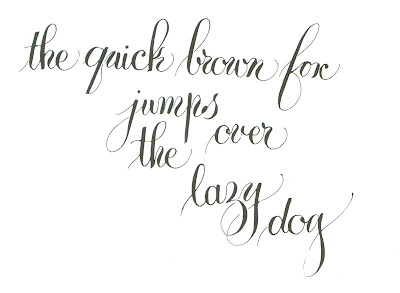 the quick brown fox
jumps over
the
lazy dog